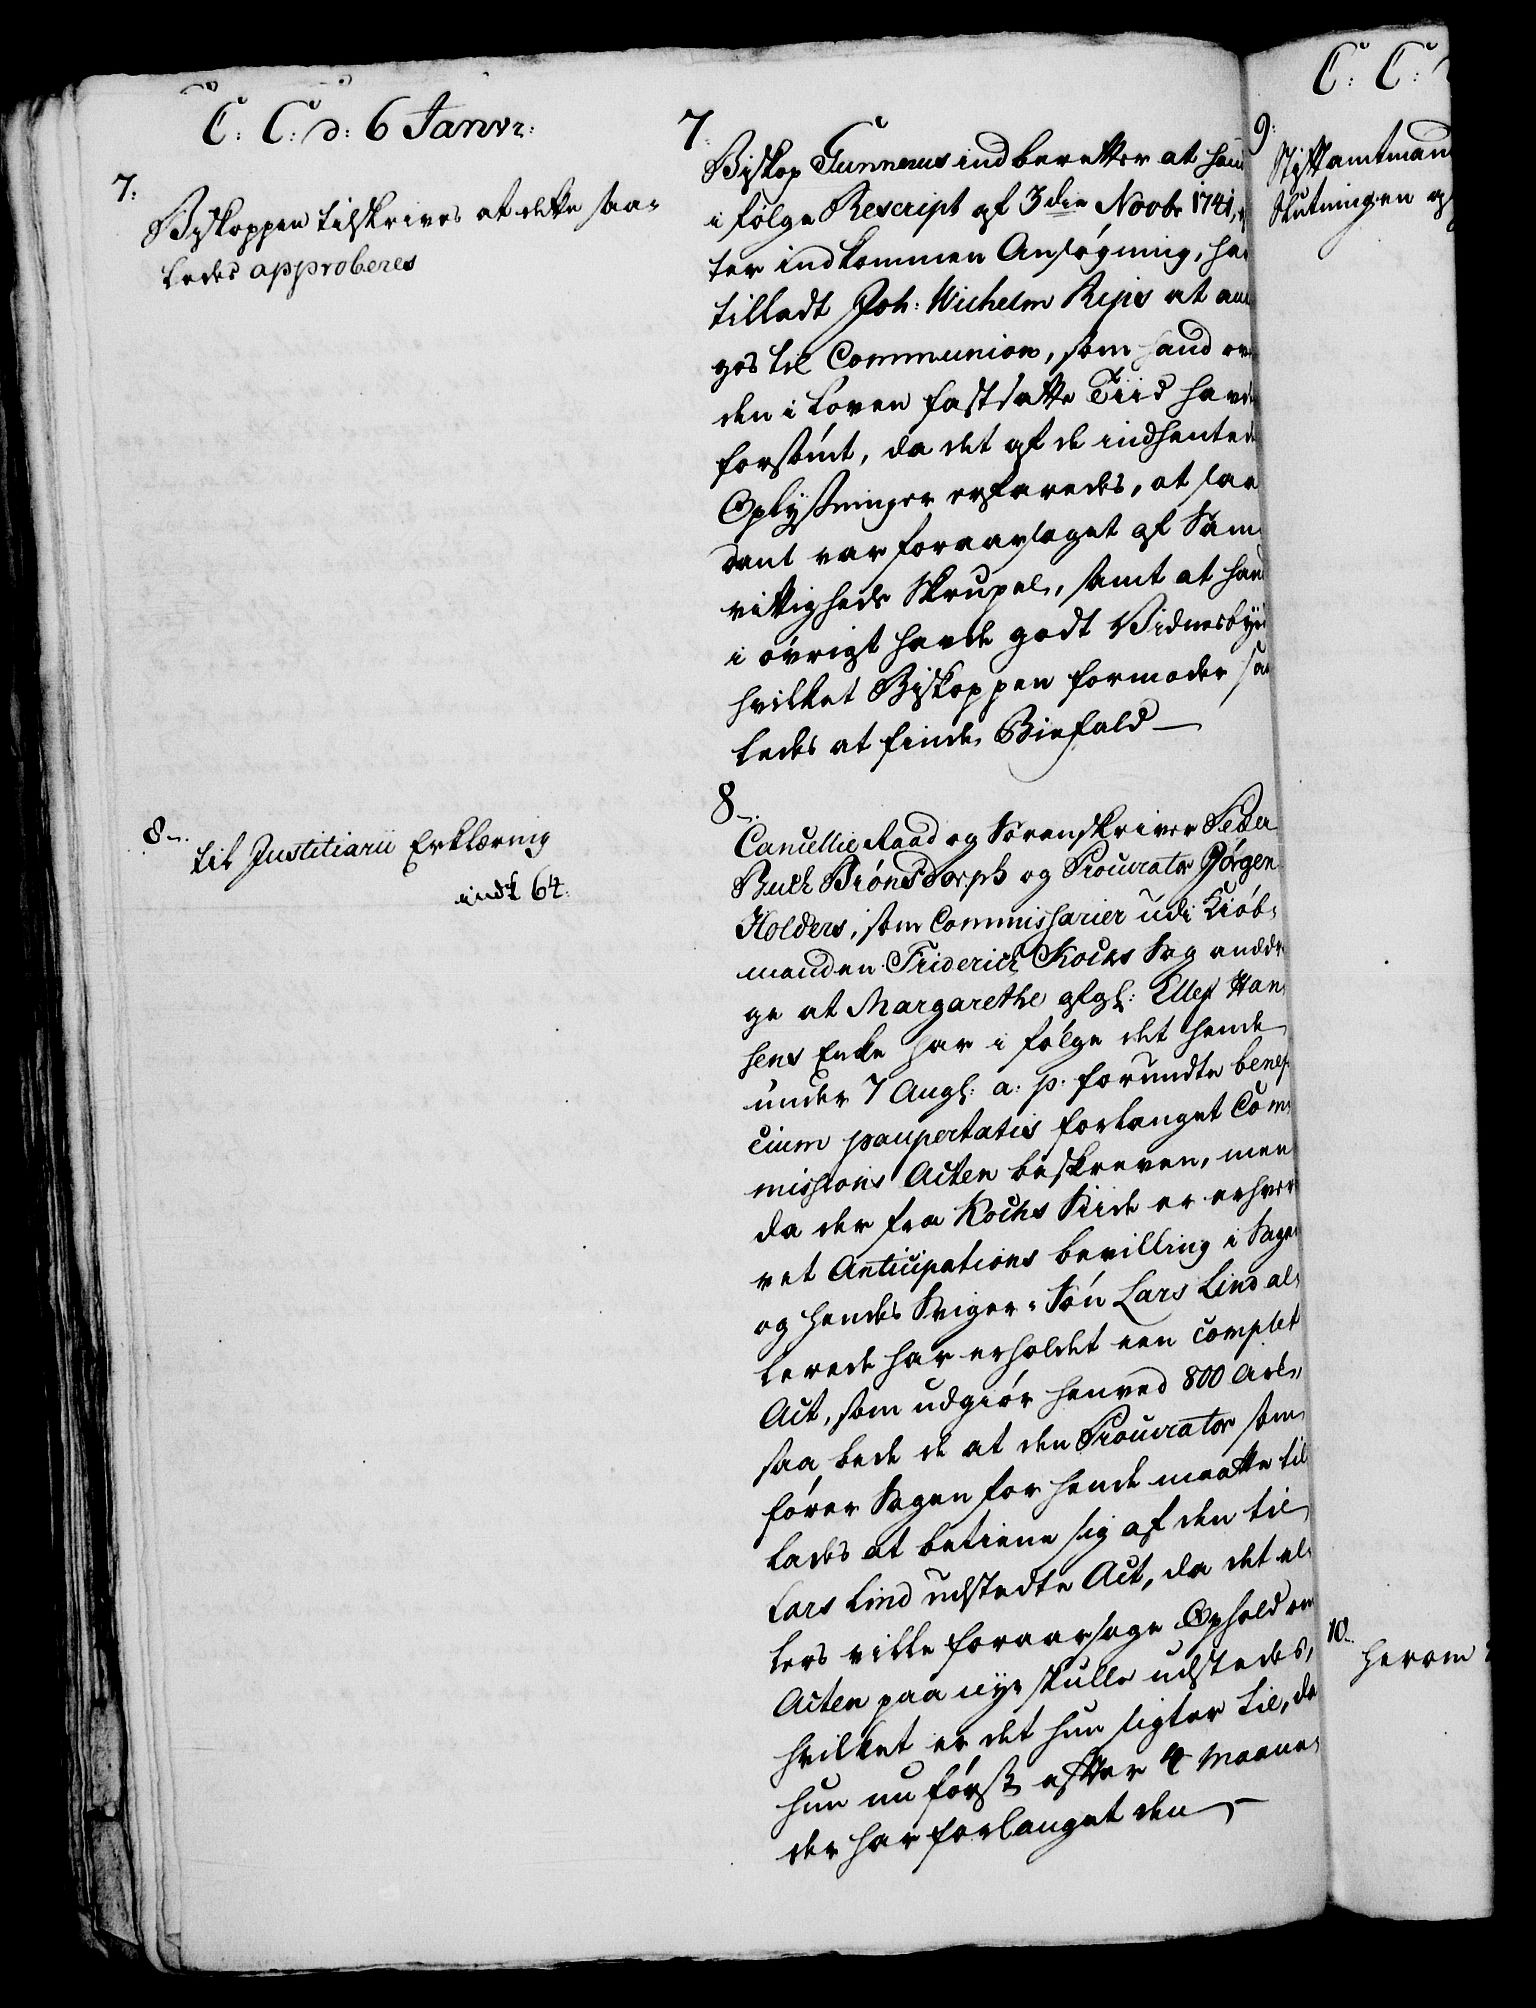 C: C: d: 6 Janvr:
7:
Biskoppen tilskrives at dette saa-
ledes approberes
8.
til Justitiarii Erklæring
indk 64:
7.
Biskop Gunnerus indberetter at hand
i følge Rescript af 3die Novbr 1741,
ter indkommen Ansøgning, har
tilladt Joh: Wilhelm Reps at an
ges til Communion, som hand over
den i Loven fastsatte Tiid havde
forsømt, da det af de indhentede
Oplysninger erfaredes, at saa
dant var foraarsaget af Sam-
vittigheds Skrupel, samt at hand
i øvrigt havde godt Vidnesbyrd
hvilket Biskoppen formoder saa
ledes at finde Biefald —
8.
Cancellie Raad og Sorenskriver Peder
Buch Biönsdorph og Procurator Jörgen
Holders, som Commissarier udi Kiøb-
manden Friderich Kochs Sag andra
ge at Margarethe afgl: Ellef Han-
sens Enke har i følge det hende
under 7 Augl: a: p: forundte benef
cium paupertatis forlanget Com-
missions Acten beskreven, men
da der fra Kochs Siide er erhver
vet Anticipations bevilling i Sagen
og hendes Sviger-Søn Lars Lind al-
lerede har erholdet een complet
Act, som udgiør henved 800 Ark,
saa bede de at den Procurator som
fører Sagen for hende maatte til
lades at betiene sig af den til
Lars Lind udstedte Act, da det el-
lers ville foraarsage Ophold om
Acten paa nye skulle udstedes,
hvilket er det hun sigter til, da
hun nu først efter 4 Maane-
der har forlanget den —
C: C:
9:
Stiftamtmand
Slutningen af
10.
herom